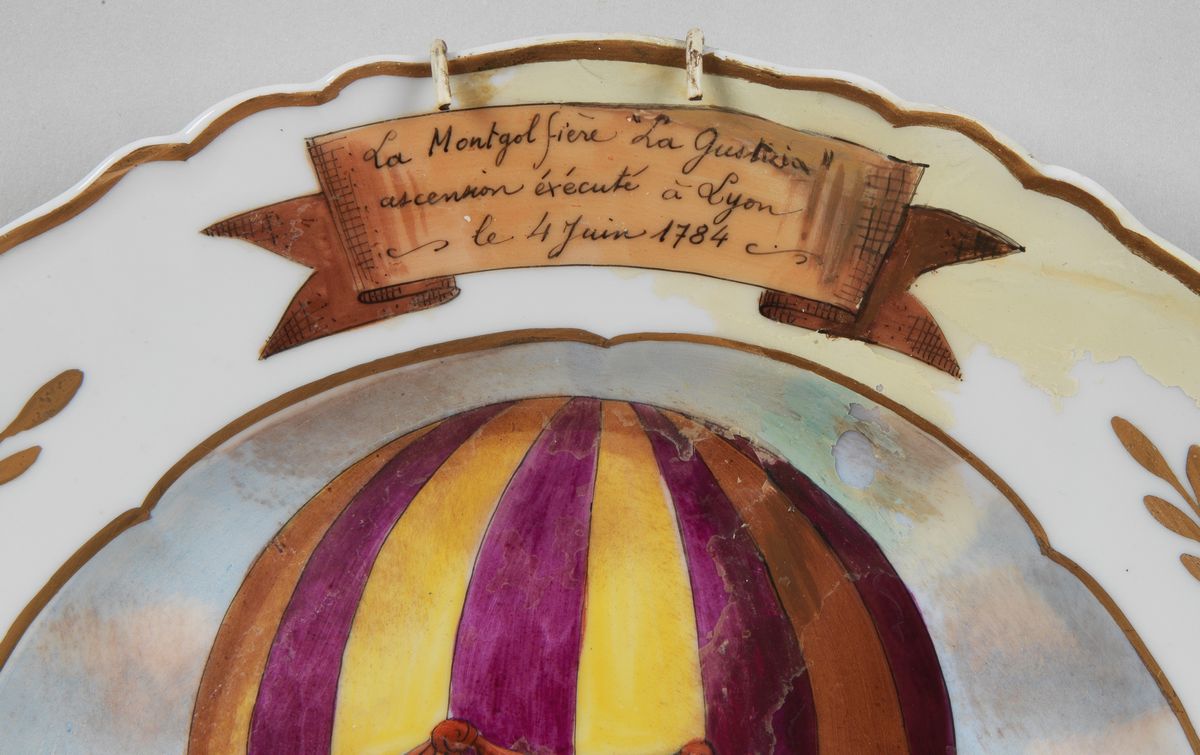 La Montgolfière "La Gustvia"
ascension éxécuté à Lyon
le 4 Juin 1784